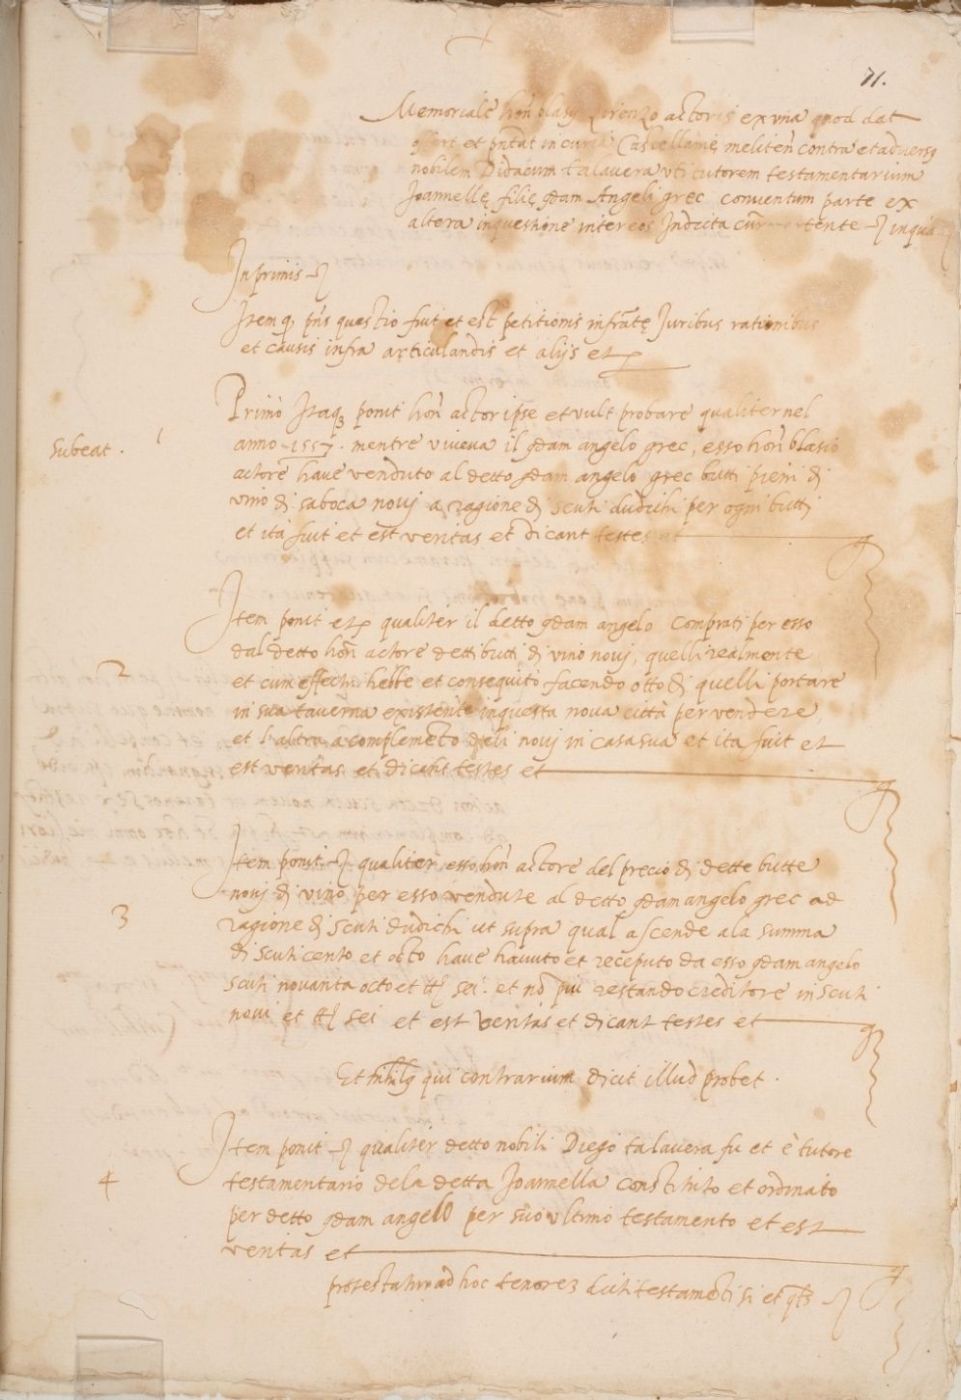 71.
Memoriale hon blasij Lorenzo actoris ex una quod dat
offert et pntat in curia Castellanie meliten contra et adversus
nobilem Didacum talavera uti tutorem testamentarium
Joannelle filie qdam Angeli grec conventum parte ex
altera in questione inter eos Indecta
In primis
Item q pns questio fuit et est petitionis infrate Juribus rationibus
et causis infra articulandis et alijs et
Primo Itaq ponit hon actor ipse et vult probare qualiter nel
subeat . 1 anno 1557 . mentre viveva il qdam angelo grec, esso hon blasio
actore have venduto al detto qdam angelo grec butti pieni di
vino di saboca novj a ragione di scuti dudichi per ogni butti
et ita fuit et est veritas et dicant testes et
Item ponit et qualiter il detto qdam angelo comprati per esso
dal detto hon actore detti butti di vino novj, quelli realmente
2 et cum effectu hebbe et consequito facendo otto di quelli portare
in sua taverna existente in questa nova citta per vendere
et l'altra a complemento deli novj in casa sua et ita fuit et
est veritas et dicant testes et
Item ponit qualiter esso hon actore del precio di dette butte
novj di vino per esso vendute al detto qdam angelo grec ad
3 ragione di scuti dudichi ut supra qual ascende a la summa
di scuti cento et octo have havuto et receputo da esso qdam angelo
scuti novanta octo et tt sei . et no piu restando creditore in scuti
novi et tt sei et est veritas et dicant testes et
Et nihilq qui contrarium dicit illud probet .
Item ponit qualiter detto nobili Diego talavera fu et è tutore
4 testamentario dela detta Joannella constituto et ordinato
per detto qdam angelo per suo ultimo testamento et est
veritas et
protestatur ad hoc tenorez dicti testamenti si et